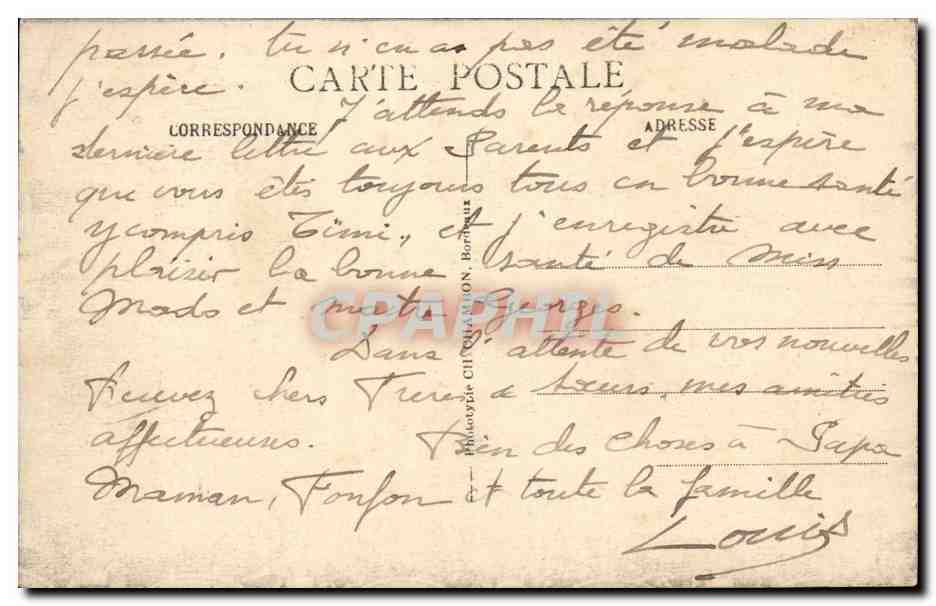 passée. tu n'en as pas été malade
CARTE POSTALE
j'espère.
J'attends la réponse à ma
CORRESPONDANCE
ADRESSE
dernière lettre aux Parents et j'espère
que vous êtes toujours tous en bonne santé
y compris Timi, et j'enregistre avec
plaisir la bonne santé de Miss
Mado et maître Georges.
CPAPHIL
Dans l'attente de vos nouvelles
recevez chers Frères & soeurs, mes amitiés
affectueuses. Bien des choses à Papa
Maman, Fonfon et toute la famille
Louis
Phototypie CH. CHAMBON, Bordeaux